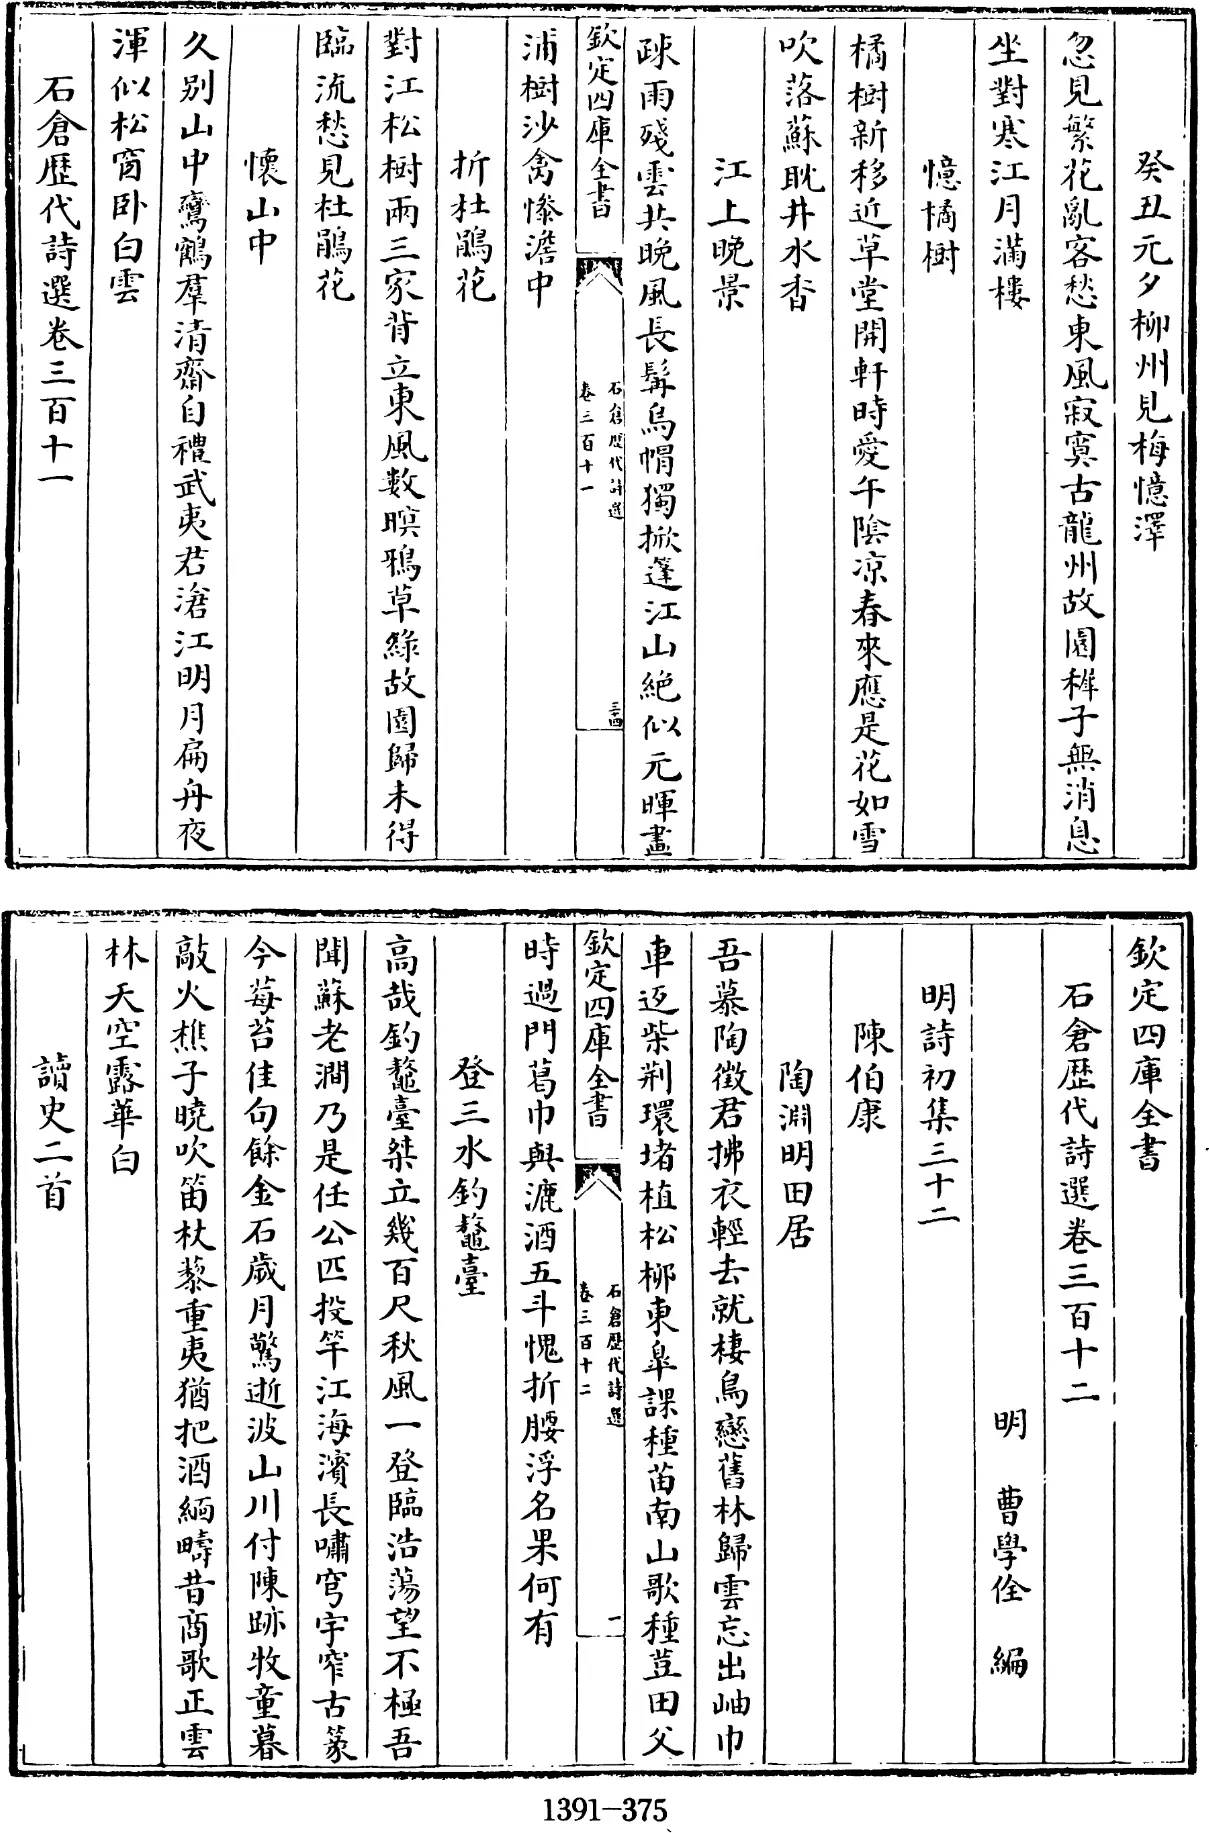 癸丑元夕柳州見梅憶澤
忽見繁花亂客愁東風寂寞古龍州故園稚子無消息
坐對寒江月滿樓
憶橘樹
橘樹新移近草堂開軒時愛午陰凉春來應是花如雪
吹落蘇耽井水香
江上晚景
疎雨殘雲共晚風長髯烏帽獨掀蓬江山絶似元暉畫
欽定四庫全書
石倉歴代詩選
卷三百十一
三四
浦樹沙禽慘澹中
折杜鵑花
對江松樹兩三家背立東風數暝鴉草綠故園歸未得
臨流愁見杜鵑花
懷山中
久别山中鸞鶴羣清齋自禮武夷君滄江明月扁舟夜
渾似松窗卧白雲
石倉歴代詩選卷三百十一
欽定四庫全書
石倉歴代詩選卷三百十二
明 曹學佺 編
明詩初集三十二
陳伯康
陶淵明田居
吾慕陶徵君拂衣輕去就棲鳥戀舊林歸雲忘出岫巾
車返柴荆環堵植松柳東臯課種苗南山歌種荳田父
欽定四庫全書
石倉歴代詩選
卷三百十二
一
時過門葛巾與漉酒五斗愧折腰浮名果何有
登三水釣鼇臺
高哉釣鼇臺桀立幾百尺秋風一登臨浩蕩望不極吾
聞蘇老澗乃是任公匹投竿江海濱長嘯穹宇窄古篆
今莓苔佳句餘金石歲月驚逝波山川付陳跡牧童暮
敲火樵子曉吹笛杖藜重夷猶把酒緬疇昔商歌正雲
林天空露華白
讀史二首
1391-375